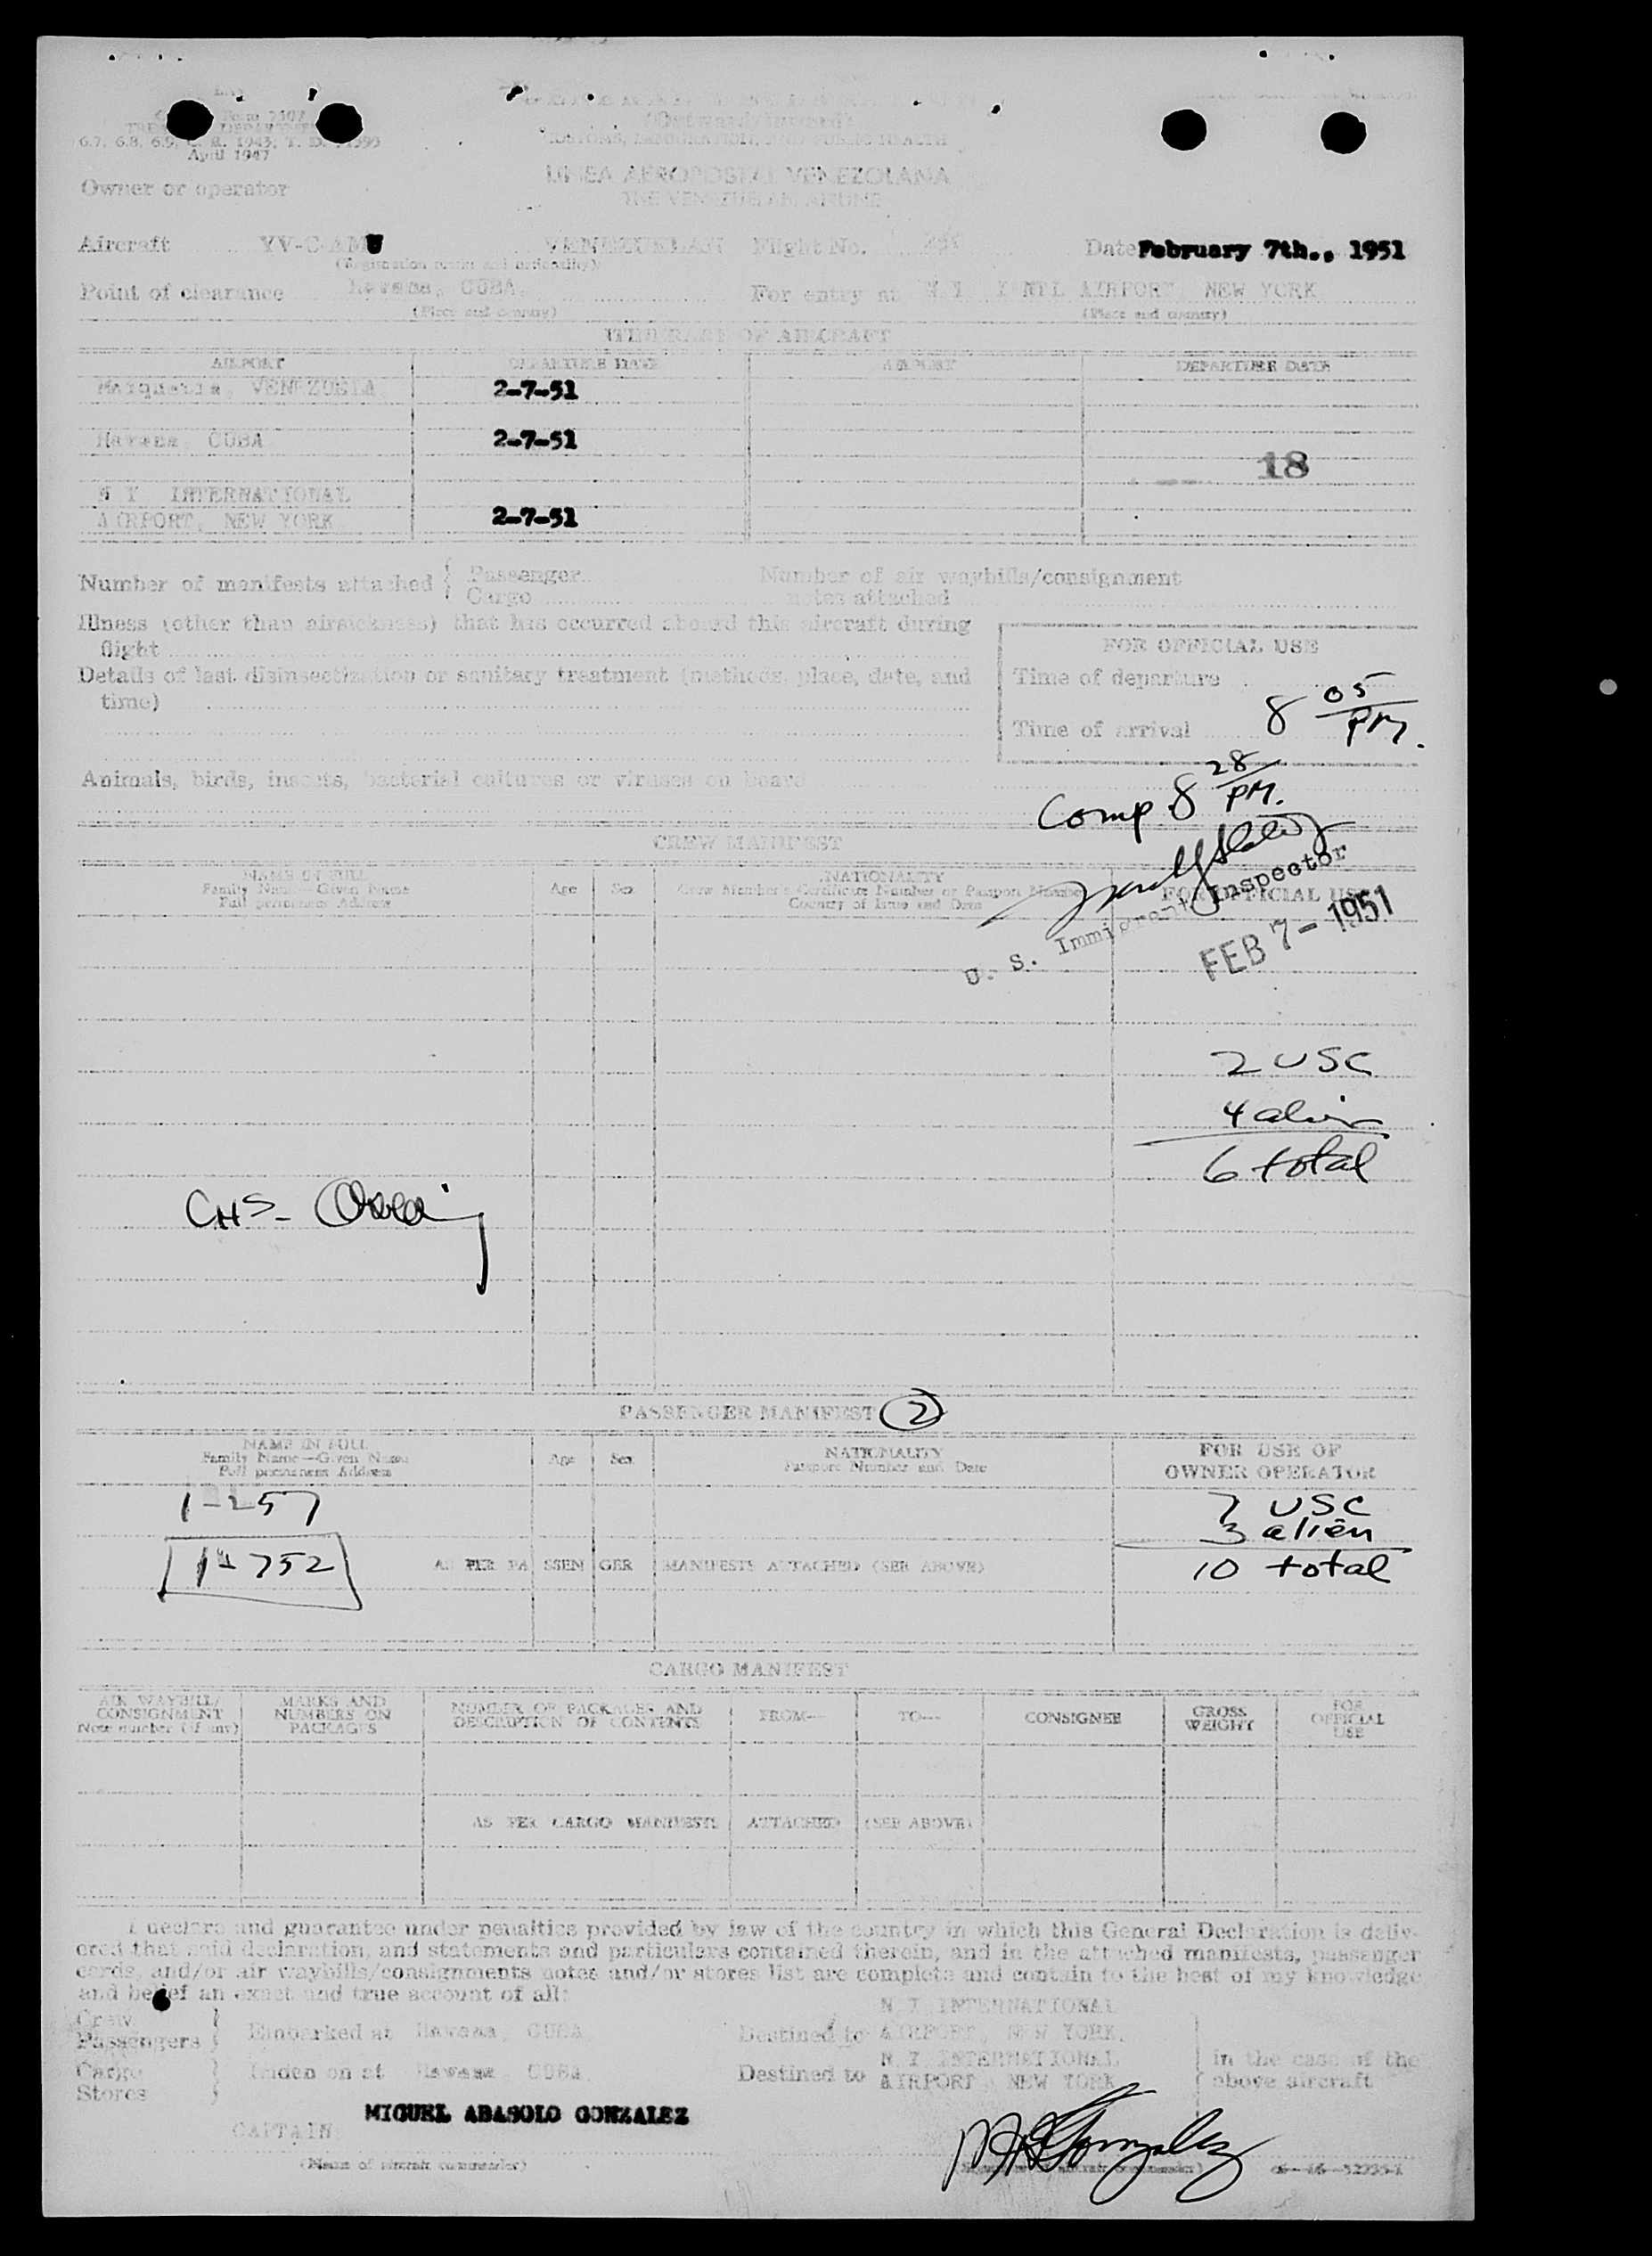 Form 7507
TREASURY DEPARTMENT
6.7, 6.8, 6.9, C. R. 1943, T. D.
April 1947
(Outward/Inward)
CUSTOMS, IMMIGRATION, AND PUBLIC HEALTH
Owner or operator LINEA AEROPOSTAL VENEZOLANA
THE VENEZUELAN AIRLINE
Aircraft YV-C-AMU VENEZUELAN Flight No. Date February 7th., 1951
(Registration marks and nationality)
Point of clearance Havana, CUBA. For entry at N Y INTL AIRPORT, NEW YORK
(Place and country) (Place and country)
ITINERARY OF AIRCRAFT
AIRPORT DEPARTURE DATE AIRPORT DEPARTURE DATE
Maiquetia, VENEZUELA 2-7-51
Havana, CUBA 2-7-51
18
N Y INTERNATIONAL
AIRPORT, NEW YORK 2-7-51
Number of manifests attached { Passenger Number of air waybills/consignment
Cargo notes attached
Illness (other than airsickness) that has occurred aboard this aircraft during
flight
FOR OFFICIAL USE
Details of last disinsectization or sanitary treatment (methods, place, date, and
time)
Time of departure
Time of arrival 8 05 PM.
Animals, birds, insects, bacterial cultures or viruses on board
Comp 8 28 PM.
CREW MANIFEST
NAME IN FULL
Family Name—Given Name
Full permanent Address
Age Sex
NATIONALITY
Crew Member's Certificate Number or Passport Number
Country of Issue and Date
FOR OFFICIAL USE
U. S. Immigrant Inspector
FEB 7 - 1951
2 USC
4 alien
6 total
CHS-
PASSENGER MANIFEST (2)
NAME IN FULL
Family Name—Given Name
Full permanent Address
Age Sex
NATIONALITY
Passport Number and Date
FOR USE OF
OWNER OPERATOR
1-257 7 USC
3 alien
1-752 AS PER PASSENGER MANIFESTS ATTACHED (SEE ABOVE) 10 total
CARGO MANIFEST
AIR WAYBILL/
CONSIGNMENT
Note number (if any)
MARKS AND
NUMBERS ON
PACKAGES
NUMBER OF PACKAGES AND
DESCRIPTION OF CONTENTS
FROM— TO— CONSIGNEE
GROSS
WEIGHT
FOR
OFFICIAL
USE
AS PER CARGO MANIFESTS ATTACHED (SEE ABOVE)
I declare and guarantee under penalties provided by law of the country in which this General Declaration is deliv-
ered that said declaration, and statements and particulars contained therein, and in the attached manifests, passenger
cards, and/or air waybills/consignments notes and/or stores list are complete and contain to the best of my knowledge
and belief an exact and true account of all:
Crew
Passengers } Embarked at Havana, CUBA. Destined to N Y INTERNATIONAL AIRPORT, NEW YORK.
Cargo
Stores } Laden on at Havana, CUBA. Destined to N Y INTERNATIONAL AIRPORT, NEW YORK
in the case of the
above aircraft
MIGUEL ABASOLO GONZALEZ
CAPTAIN
(Name of aircraft commander)
M A Gonzalez